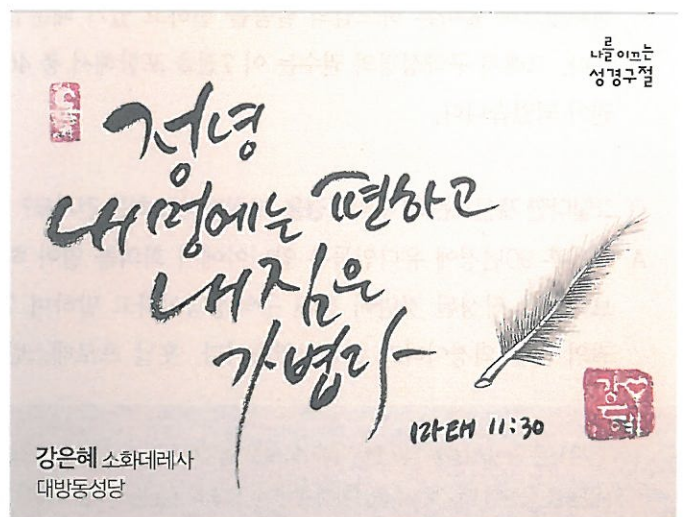 나를 이끄는
성경구절
정녕
내 멍에는 편하고
내 짐은
가볍다
마태 11:30
강은혜
강은혜 소화데레사
대방동성당